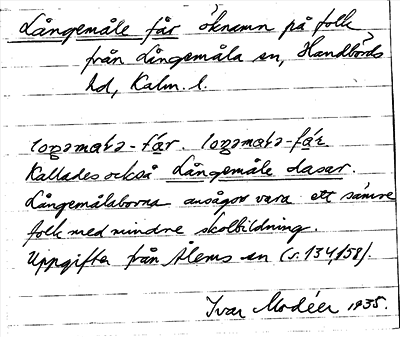 Långemåle får öknamn på folk
från Långemåla sn, Handbörds
hd, Kalm. l.
loŋəmɑɩə-fɑ́r. loŋəmɑɩə-fɑ́r
Kallades också Långemåle dasar.
Långemålaborna ansågos vara ett sämre
folk med mindre skolbildning.
Uppgifter från Ålems sn (s. 134, 158).
Ivar Modéer 1935.